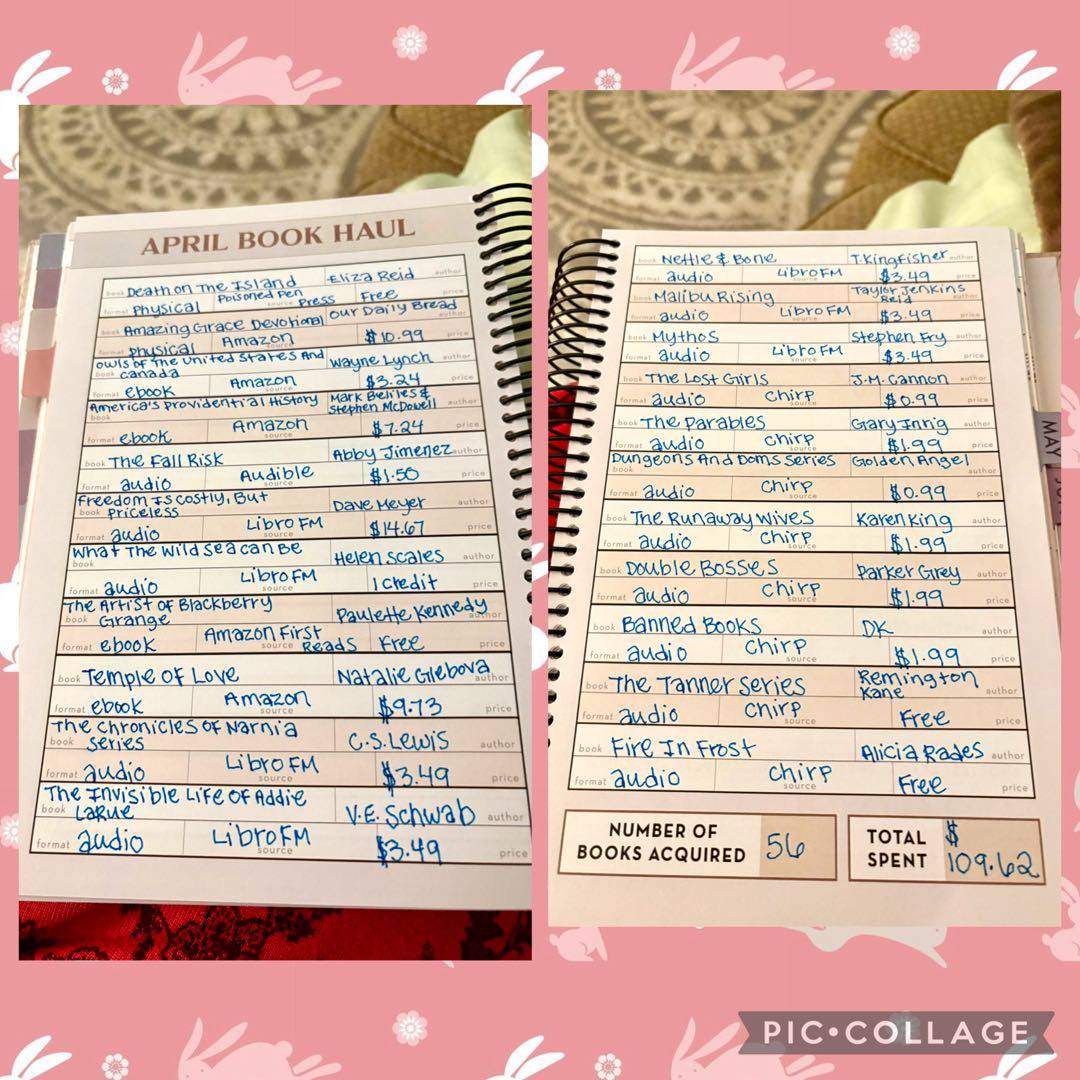 APRIL BOOK HAUL
book Death on The Island Eliza Reid author
format Physical Poisoned Pen Press source Free price
book Amazing Grace Devotional Our Daily Bread author
format Physical Amazon source $10.99 price
Owls of The United States And
book Canada Wayne Lynch author
format ebook Amazon source $3.24 price
America's Providential History Mark Beliles &
book Stephen McDowell author
format ebook Amazon source $7.24 price
book The Fall Risk Abby Jimenez author
format audio Audible source $1.50 price
Freedom Is Costly, But
book Priceless Dave Meyer author
format audio Libro FM source $14.67 price
What The Wild Sea Can Be
book Helen Scales author
format audio Libro FM source 1 Credit price
The Artist of Blackberry
book Grange Paulette Kennedy author
format ebook Amazon First Reads Free price
book Temple of Love Natalie Glebova author
format ebook Amazon source $9.73 price
The Chronicles of Narnia
book Series C.S. Lewis author
format audio Libro FM source $3.49 price
The Invisible Life Of Addie
book LaRue V.E. Schwab author
format audio Libro FM source $3.49 price
book Nettle & Bone T. Kingfisher author
format audio Libro FM $3.49 price
book Malibu Rising Taylor Jenkins Reid author
format audio Libro FM $3.49 price
book Mythos Stephen Fry author
format audio Libro FM source $3.49 price
book The Lost Girls J.M. Cannon author
format audio Chirp source $0.99 price
book The Parables Gary Inrig author
format audio Chirp source $1.99 price
Dungeons And Doms Series Golden Angel
format audio Chirp source $0.99 price
book The Runaway Wives Karen King author
format audio Chirp source $1.99 price
book Double Bosses Parker Grey author
format audio Chirp source $1.99 price
book Banned Books DK author
format audio Chirp source $1.99 price
book The Tanner Series Remington Kane author
format audio Chirp source Free price
book Fire In Frost Alicia Rades author
format audio Chirp source Free price
NUMBER OF
BOOKS ACQUIRED 56
TOTAL
SPENT $109.62
MAY
PIC•COLLAGE